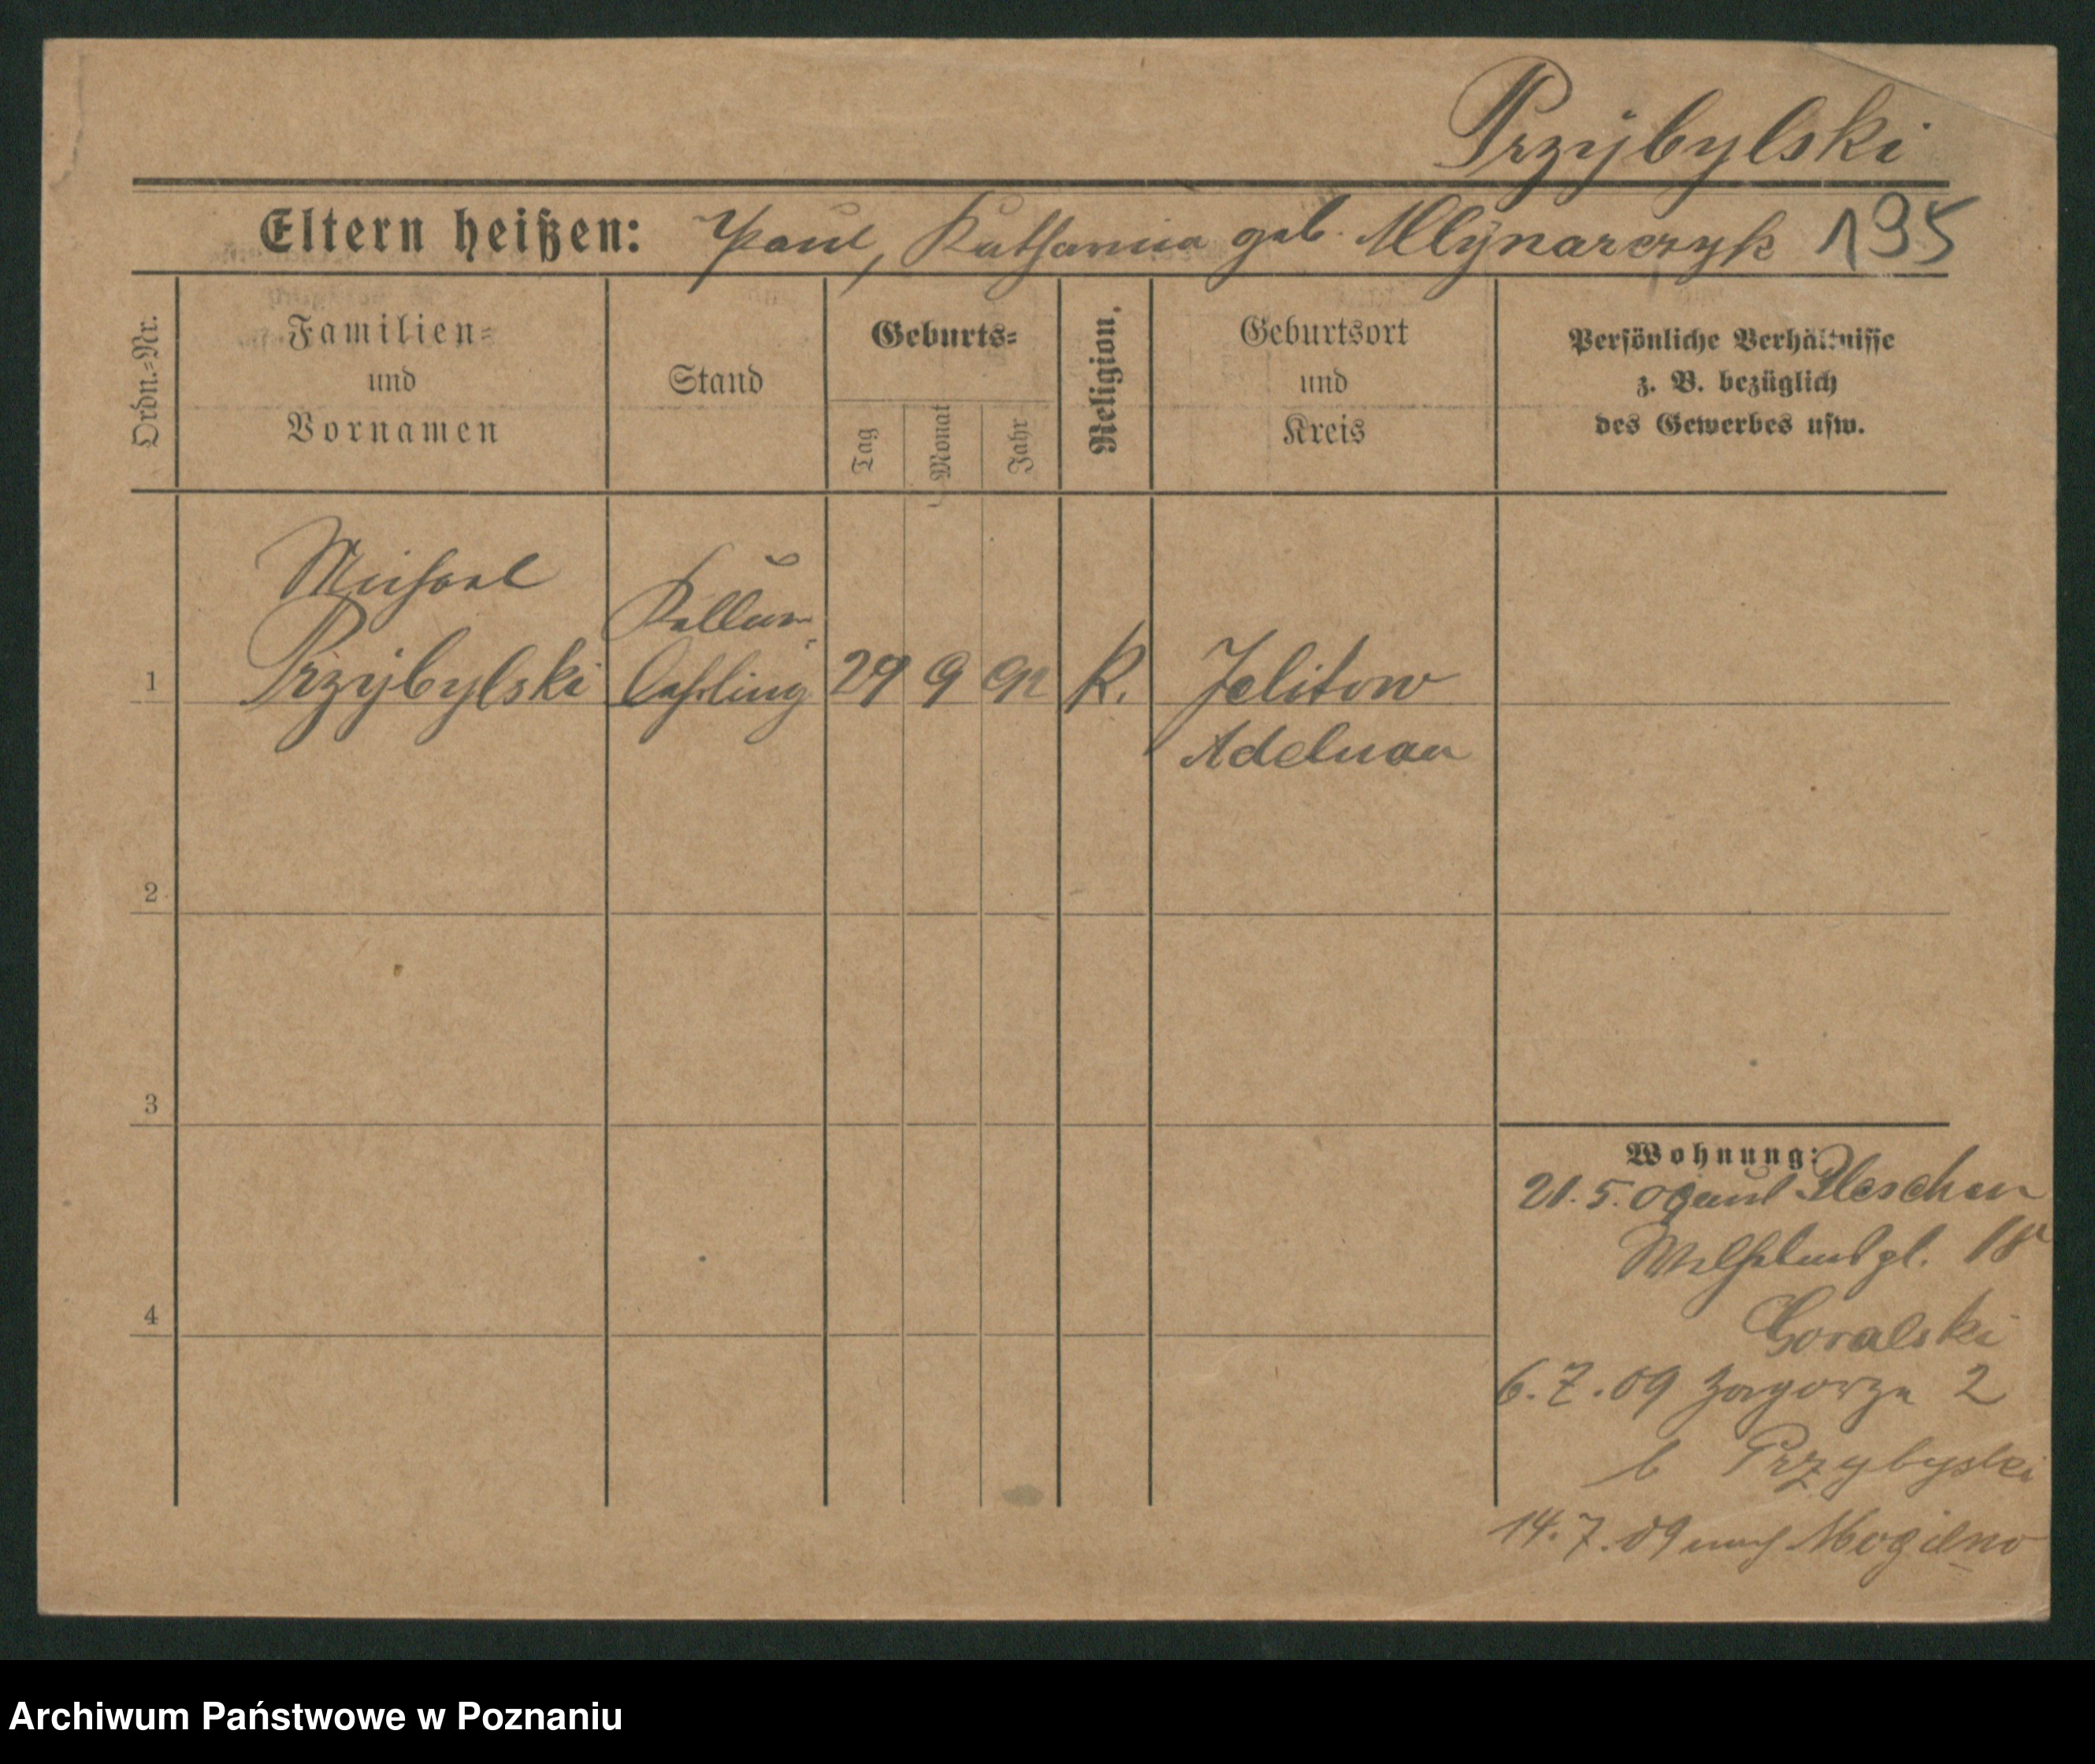 Przybylski
Eltern heißen: Paul, Katharina geb. Mlynarczyk 195
Ordn.-Nr.
Familien-
und
Vornamen
Stand
Geburts-
Tag
Monat
Jahr
Religion.
Geburtsort
und
Kreis
Persönliche Verhältnisse
z. B. bezüglich
des Gewerbes usw.
Michael
Kellner
1 Przybylski Lehrling 29 9 92 K. Jelitow
Adelnau
2
3
4
Wohnung:
21.5.09 aus Pleschen
Wilhelmspl. 18
Goralski
6.7.09 Zagorze 2
b Przybyski
14.7.09 nach Mogilno
Archiwum Państwowe w Poznaniu